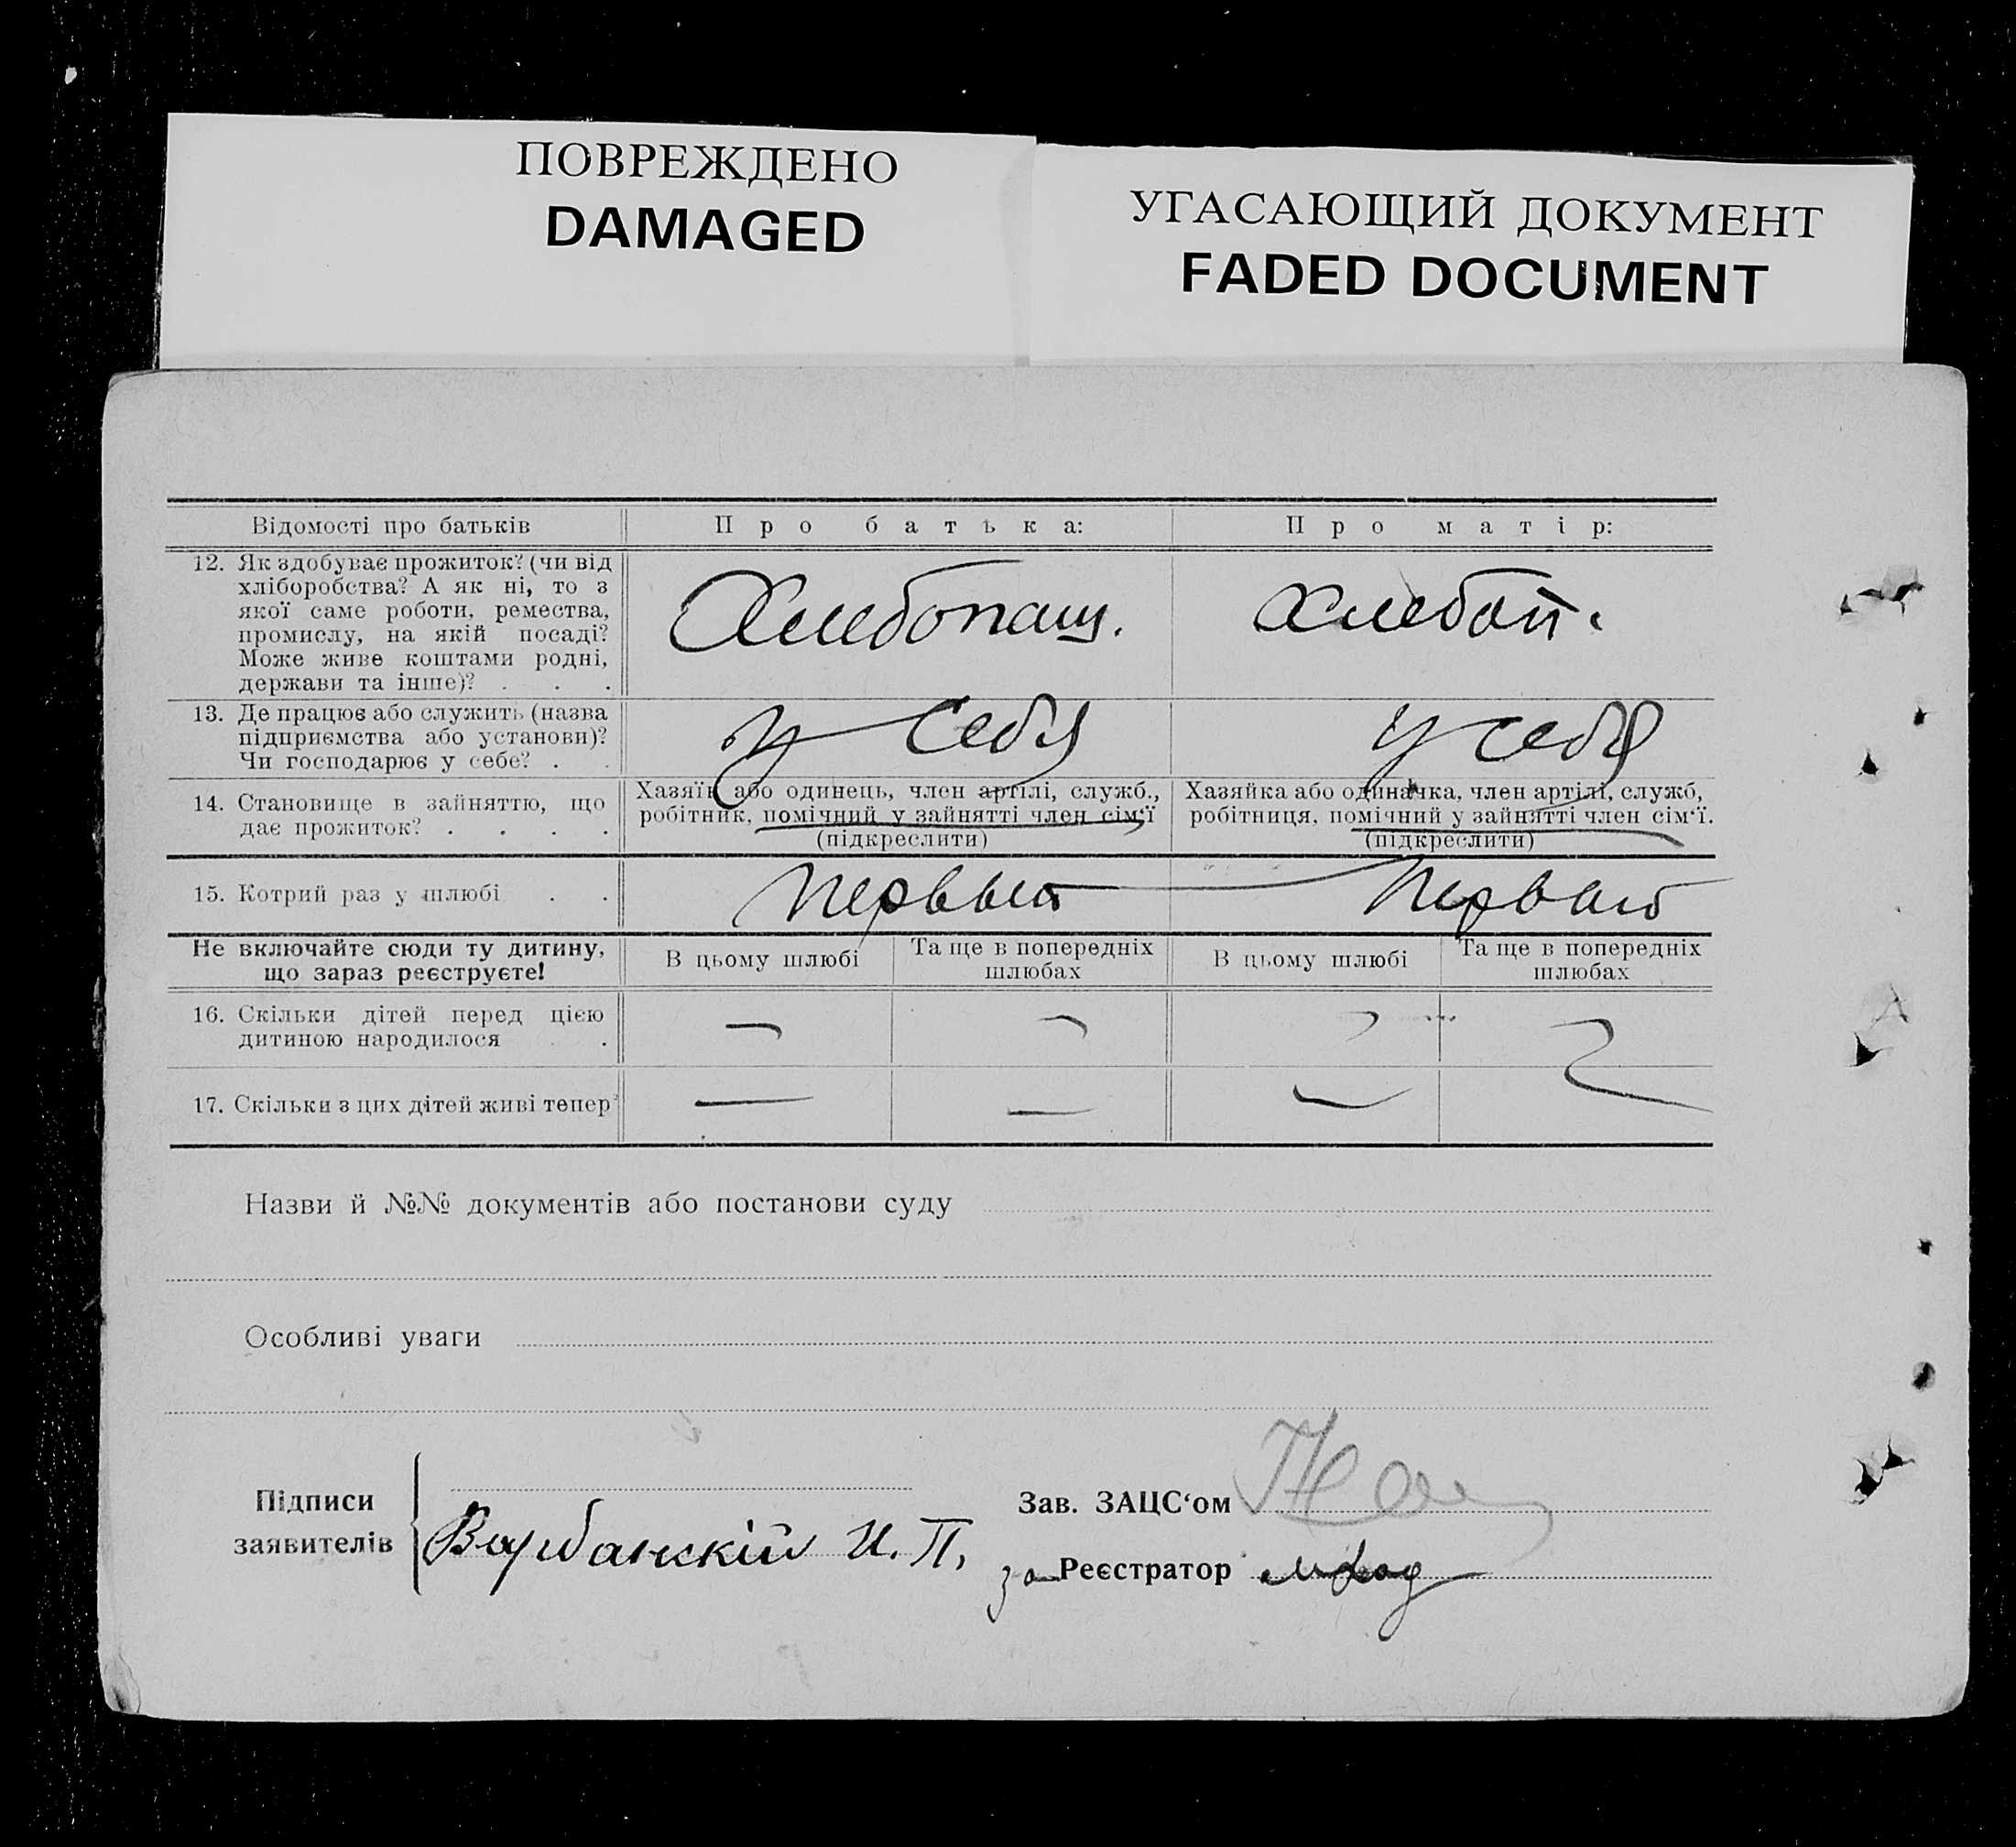 ПОВРЕЖДЕНО
DAMAGED
УГАСАЮЩИЙ ДОКУМЕНТ
FADED DOCUMENT
Відомості про батьків
Про батька:
Про матір:
12. Як здобуває прожиток? (чи від
хліборобства? А як ні, то з
якої саме роботи, ремества,
промислу, на якій посаді?
Може живе коштами родні,
держави та інше)? . . .
Хлебопаш.
Хлебоп.
13. Де працює або служить (назва
підприємства або установи)?
Чи господарює у себе? . .
у себя
у себя
14. Становище в зайняттю, що
дає прожиток? . . . .
Хазяїн або одинець, член артілі, служб.,
робітник, помічний у зайнятті член сім'ї
(підкреслити)
Хазяйка або одиначка, член артілі, служб,
робітниця, помічний у зайнятті член сім'ї.
(підкреслити)
15. Котрий раз у шлюбі . .
первый
первый
Не включайте сюди ту дитину,
що зараз реєструєте!
В цьому шлюбі
Та ще в попередніх
шлюбах
В цьому шлюбі
Та ще в попередніх
шлюбах
16. Скільки дітей перед цією
дитиною народилося .
17. Скільки з цих дітей живі тепер?
Назви й №№ документів або постанови суду
Особливі уваги
Підписи
заявителів
Варбанскій И. П.
Зав. ЗАЦС'ом
за Реєстратор